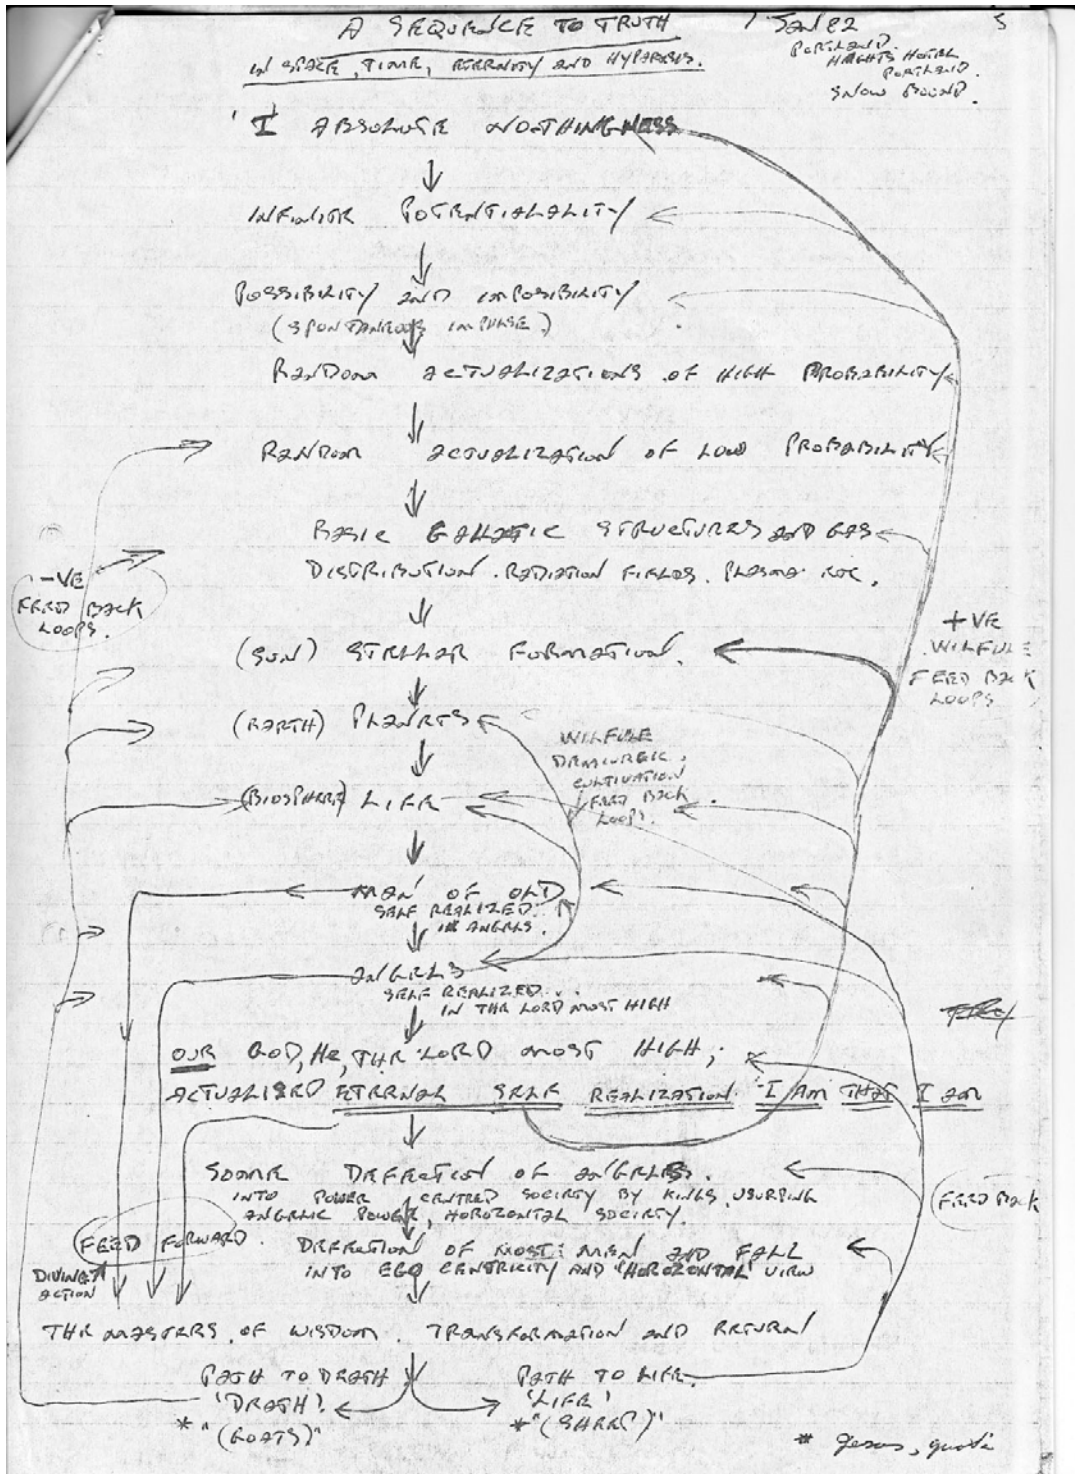 A SEQUENCE TO TRUTH
7 Jan 82
5
IN SPACE, TIME, ETERNITY AND HYPARXIS.
PORTLAND
HEIGHTS HOTEL
PORTLAND.
SNOW BOUND.
'I' ABSOLUTE NOTHINGNESS
INFINITE POTENTIALALITY
POSSIBILITY AND IMPOSIBILITY
(SPONTANEOUS IMPULSE.)
RANDOM ACTUALIZATIONS OF HIGH PROBABILITY
RANDOM ACTUALIZATION OF LOW PROBABILITY
BASIC GALLATIC STRUCTURES AND GAS
DISTRIBUTION. RADIATION FIELDS. PLASMA ETC.
-VE
FEED BACK
LOOPS.
+VE
WILFULE
FEED BACK
LOOPS
(SUN) STELLAR FORMATION.
(EARTH) PLANETS
WILFULE
DEMIURGIC.
CULTIVATION
FEED BACK
LOOPS.
(BIOSPHERE) LIFE
MEN OF OLD
SELF REALIZED..
IN ANGELS.
ANGELS
SELF REALIZED...
IN THE LORD MOST HIGH
OUR GOD, He, THE LORD MOST HIGH;
ACTUALISED ETERNAL SELF REALIZATION. "I AM THAT I AM
SOME DEFECTION OF ANGELES.
INTO POWER CENTRED SOCIETY BY KINGS USURPING
ANGELIC POWER, HOROZONTAL SOCIETY.
FEED BACK
FEED FORWARD.
DIVINE
ACTION
DEFECTION OF MOST MEN AND FALL
INTO EGO CENTRICITY AND "HOROZONTAL" VIEW
THE MASTERS OF WISDOM. TRANSFORMATION AND RETURN
PATH TO DEATH
'DEATH'.
* "(GOATS)"
PATH TO LIFE.
'LIFE'
* "(SHEEP)"
* Jesus,